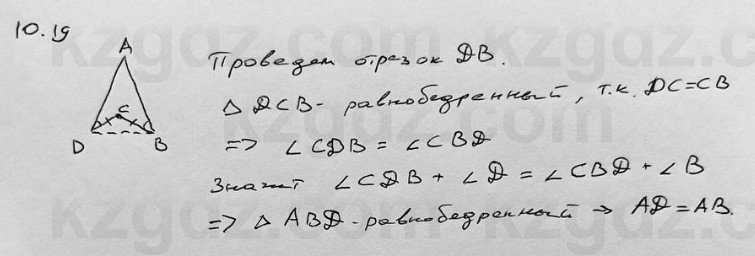 10.19
A
C
D B
Проведем отрезок DB.
△ DCB - равнобедренный, т.к. DC=CB
=> ∠CDB = ∠CBD
Значит ∠CDB + ∠D = ∠CBD + ∠B
=> △ ABD - равнобедренный => AD=AB.
kzgdz.com kzgdz.com